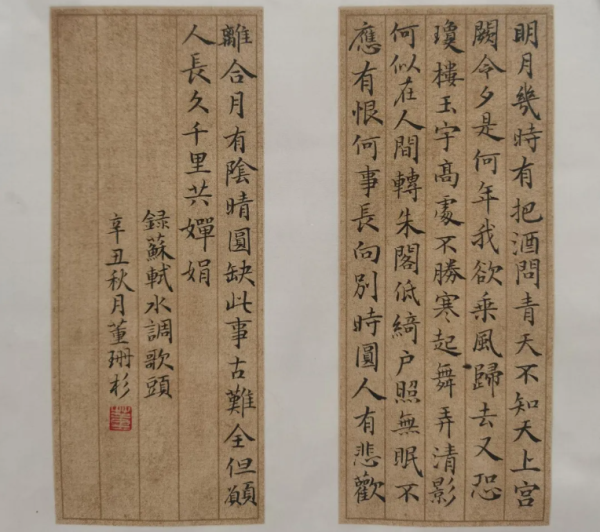 明月幾時有把酒問青天不知天上宮
闕今夕是何年我欲乘風歸去又恐
瓊樓玉宇高處不勝寒起舞弄清影
何似在人間轉朱閣低綺戶照無眠不
應有恨何事長向別時圓人有悲歡
離合月有陰晴圓缺此事古難全但願
人長久千里共嬋娟
録蘇軾水調歌頭
辛丑秋月董珊杉